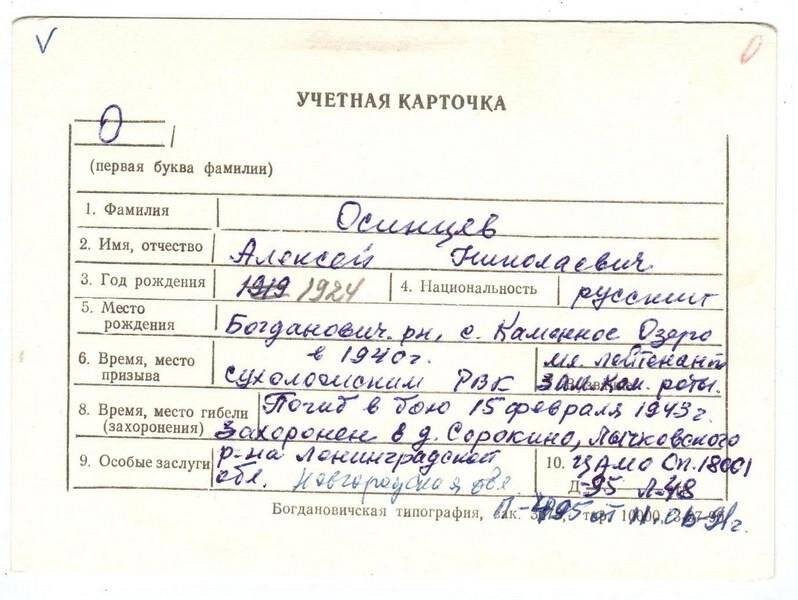 V
О
УЧЕТНАЯ КАРТОЧКА
О
(первая буква фамилии)
1. Фамилия Осинцев
2. Имя, отчество Алексей Николаевич
3. Год рождения 1919 1924 4. Национальность русский
5. Место рождения Богданович. рн, с. Каменное Озеро
6. Время, место призыва в 1940 г. Сухоложским РВК мл. лейтенант зам. ком. роты.
8. Время, место гибели (захоронения) Погиб в бою 15 февраля 1943 г.
Захоронен в д. Сорокино, Лычковского
9. Особые заслуги р-на Ленинградской обл. Новгородская обл.
10. ЦАМО Оп. 18001
Д-95 Л-48
Богдановичская типография, зак. тир. 10000, от г.